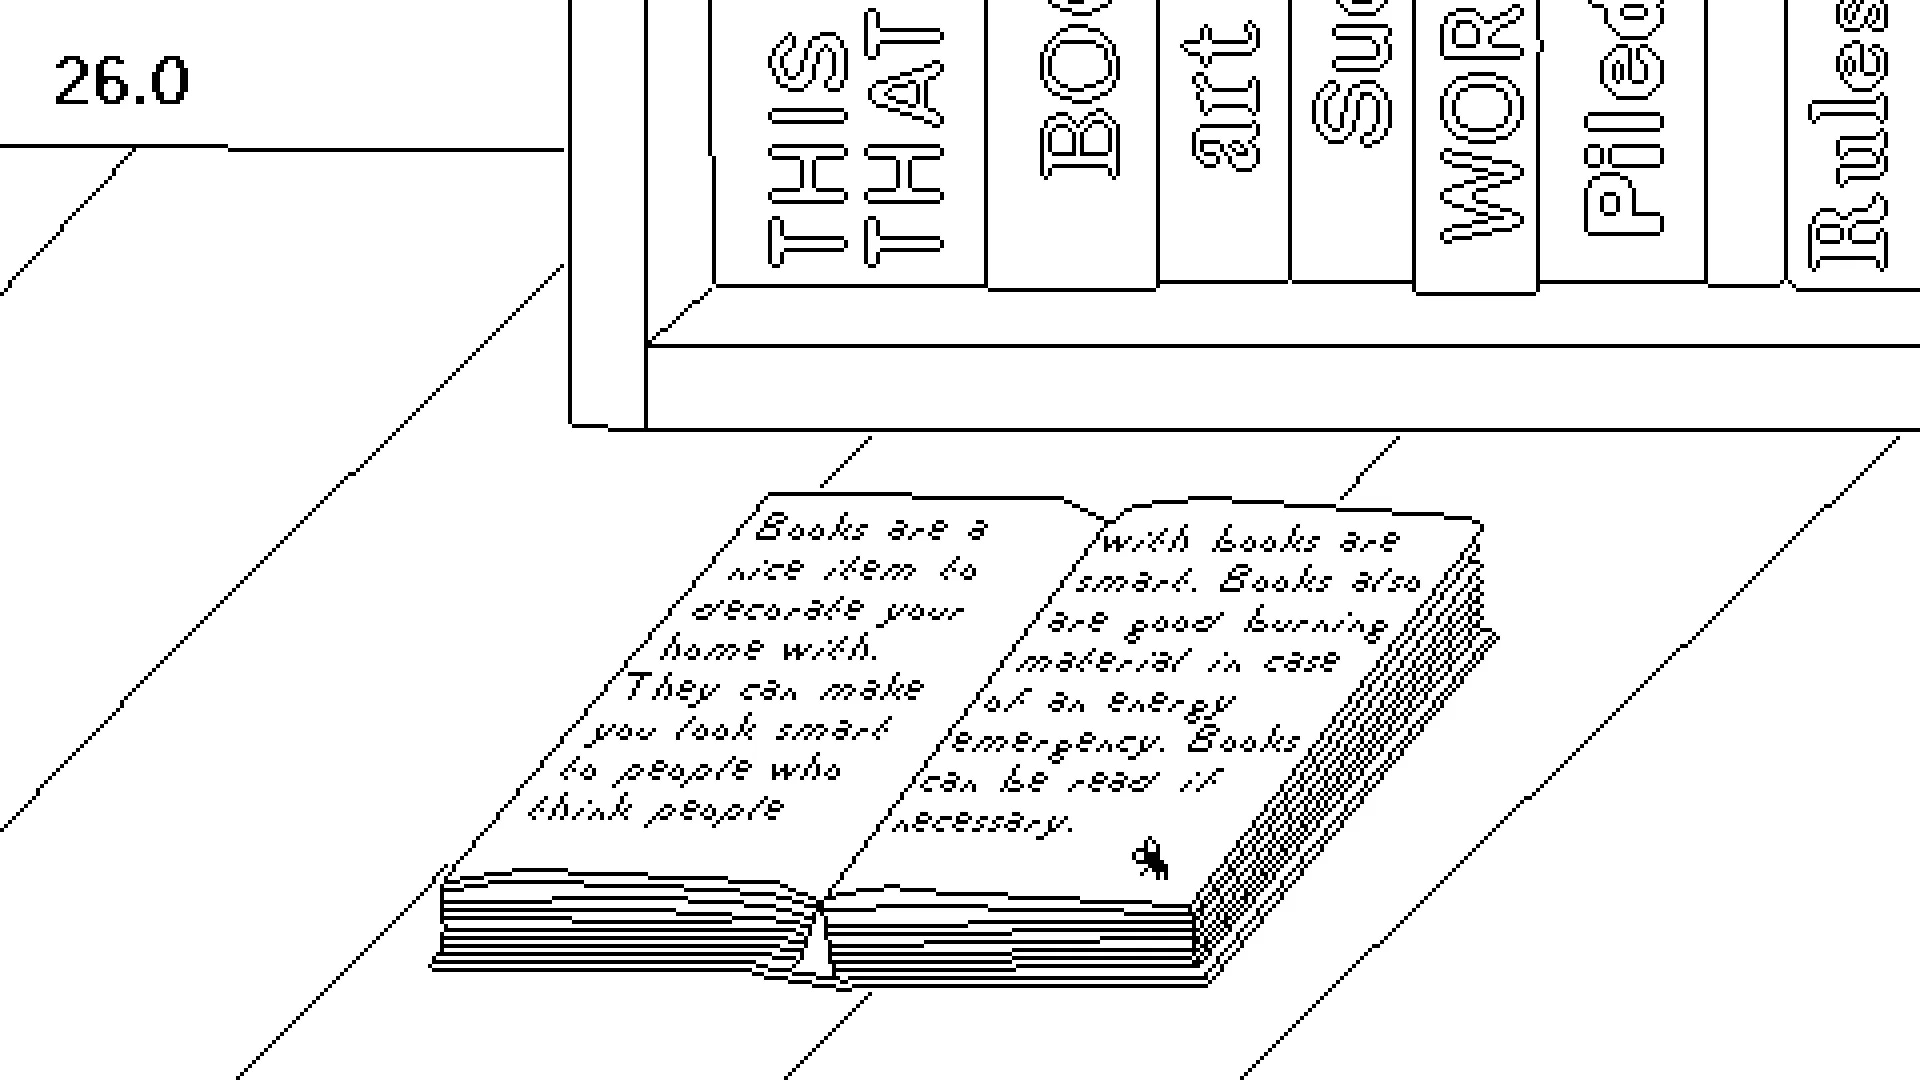 26.0
THIS
THAT
BOO
art
Suc
WOR
Piled
Rules
Books are a
nice item to
decorate your
home with.
They can make
you look smart
to people who
think people
with books are
smart. Books also
are good burning
material in case
of an energy
emergency. Books
can be read if
necessary.